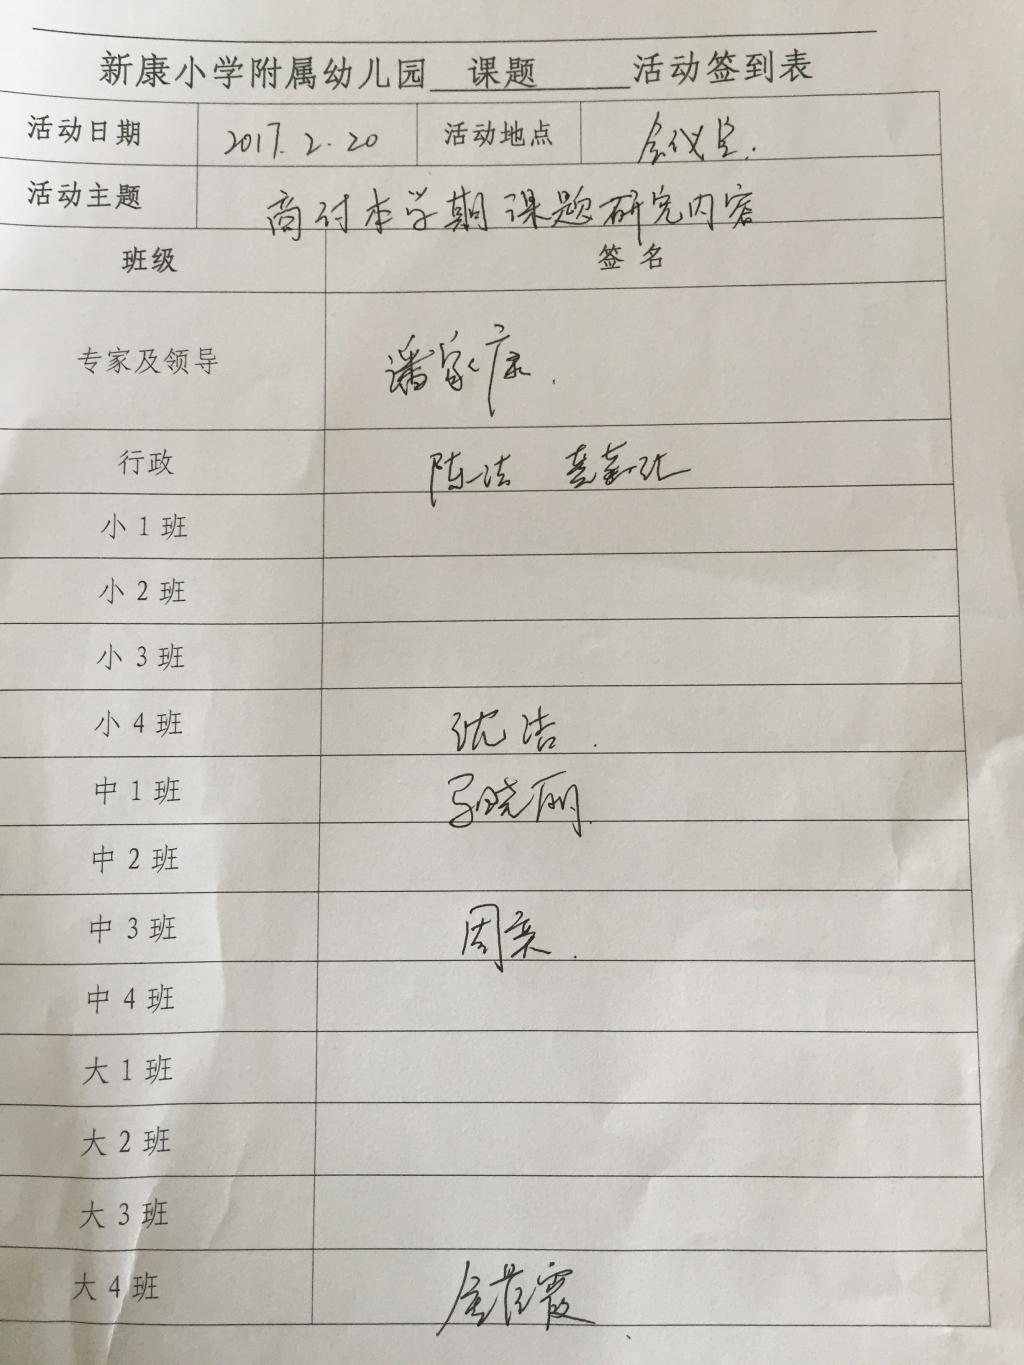 新康小学附属幼儿园 课题 活动签到表
活动日期 2017.2.20 活动地点 会议室.
活动主题 商讨本学期课题研究内容
班级 签名
专家及领导 潘家康.
行政 陈洁
小1班
小2班
小3班
小4班 沈洁.
中1班 晓丽.
中2班
中3班 周奕.
中4班
大1班
大2班
大3班
大4班 霞